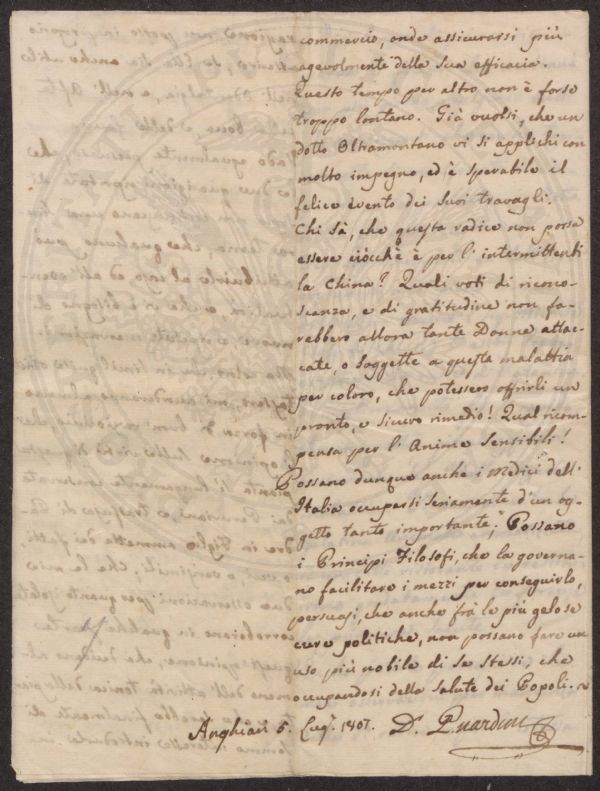 commercio, onde assicurarsi più
agevolmente della sua efficacia.
Questo tempo per altro non è forse
troppo lontano. Già vuolsi, che un
dotto Oltramontano vi si applichi con
molto impegno, ed è sperabile il
felice evento dei suoi travagli.
Chi sà, che questa radice non possa
essere ciòcchè è per l'intermittenti
la China? Quali voti di ricono-
scenza, e di gratitudine non fa-
rebbero allora tante Donne attac-
cate, o soggette a questa malattia
per coloro, che potessero offrirli un
pronto, e sicuro rimedio! Qual ricom-
pensa per l'Anime sensibili!
Possano dunque anche i Medici dell'
Italia occuparsi seriamente d'un og-
getto tanto importante; Possano
i Principi Filosofi, che la governa-
no facilitare i mezzi per conseguirlo,
persuasi, che anche frà le più gelose
cure politiche, non possano fare un
uso più nobile di se stessi, che
occupandosi della salute dei Popoli.
Anghiari 5. Lug. 1807. D.